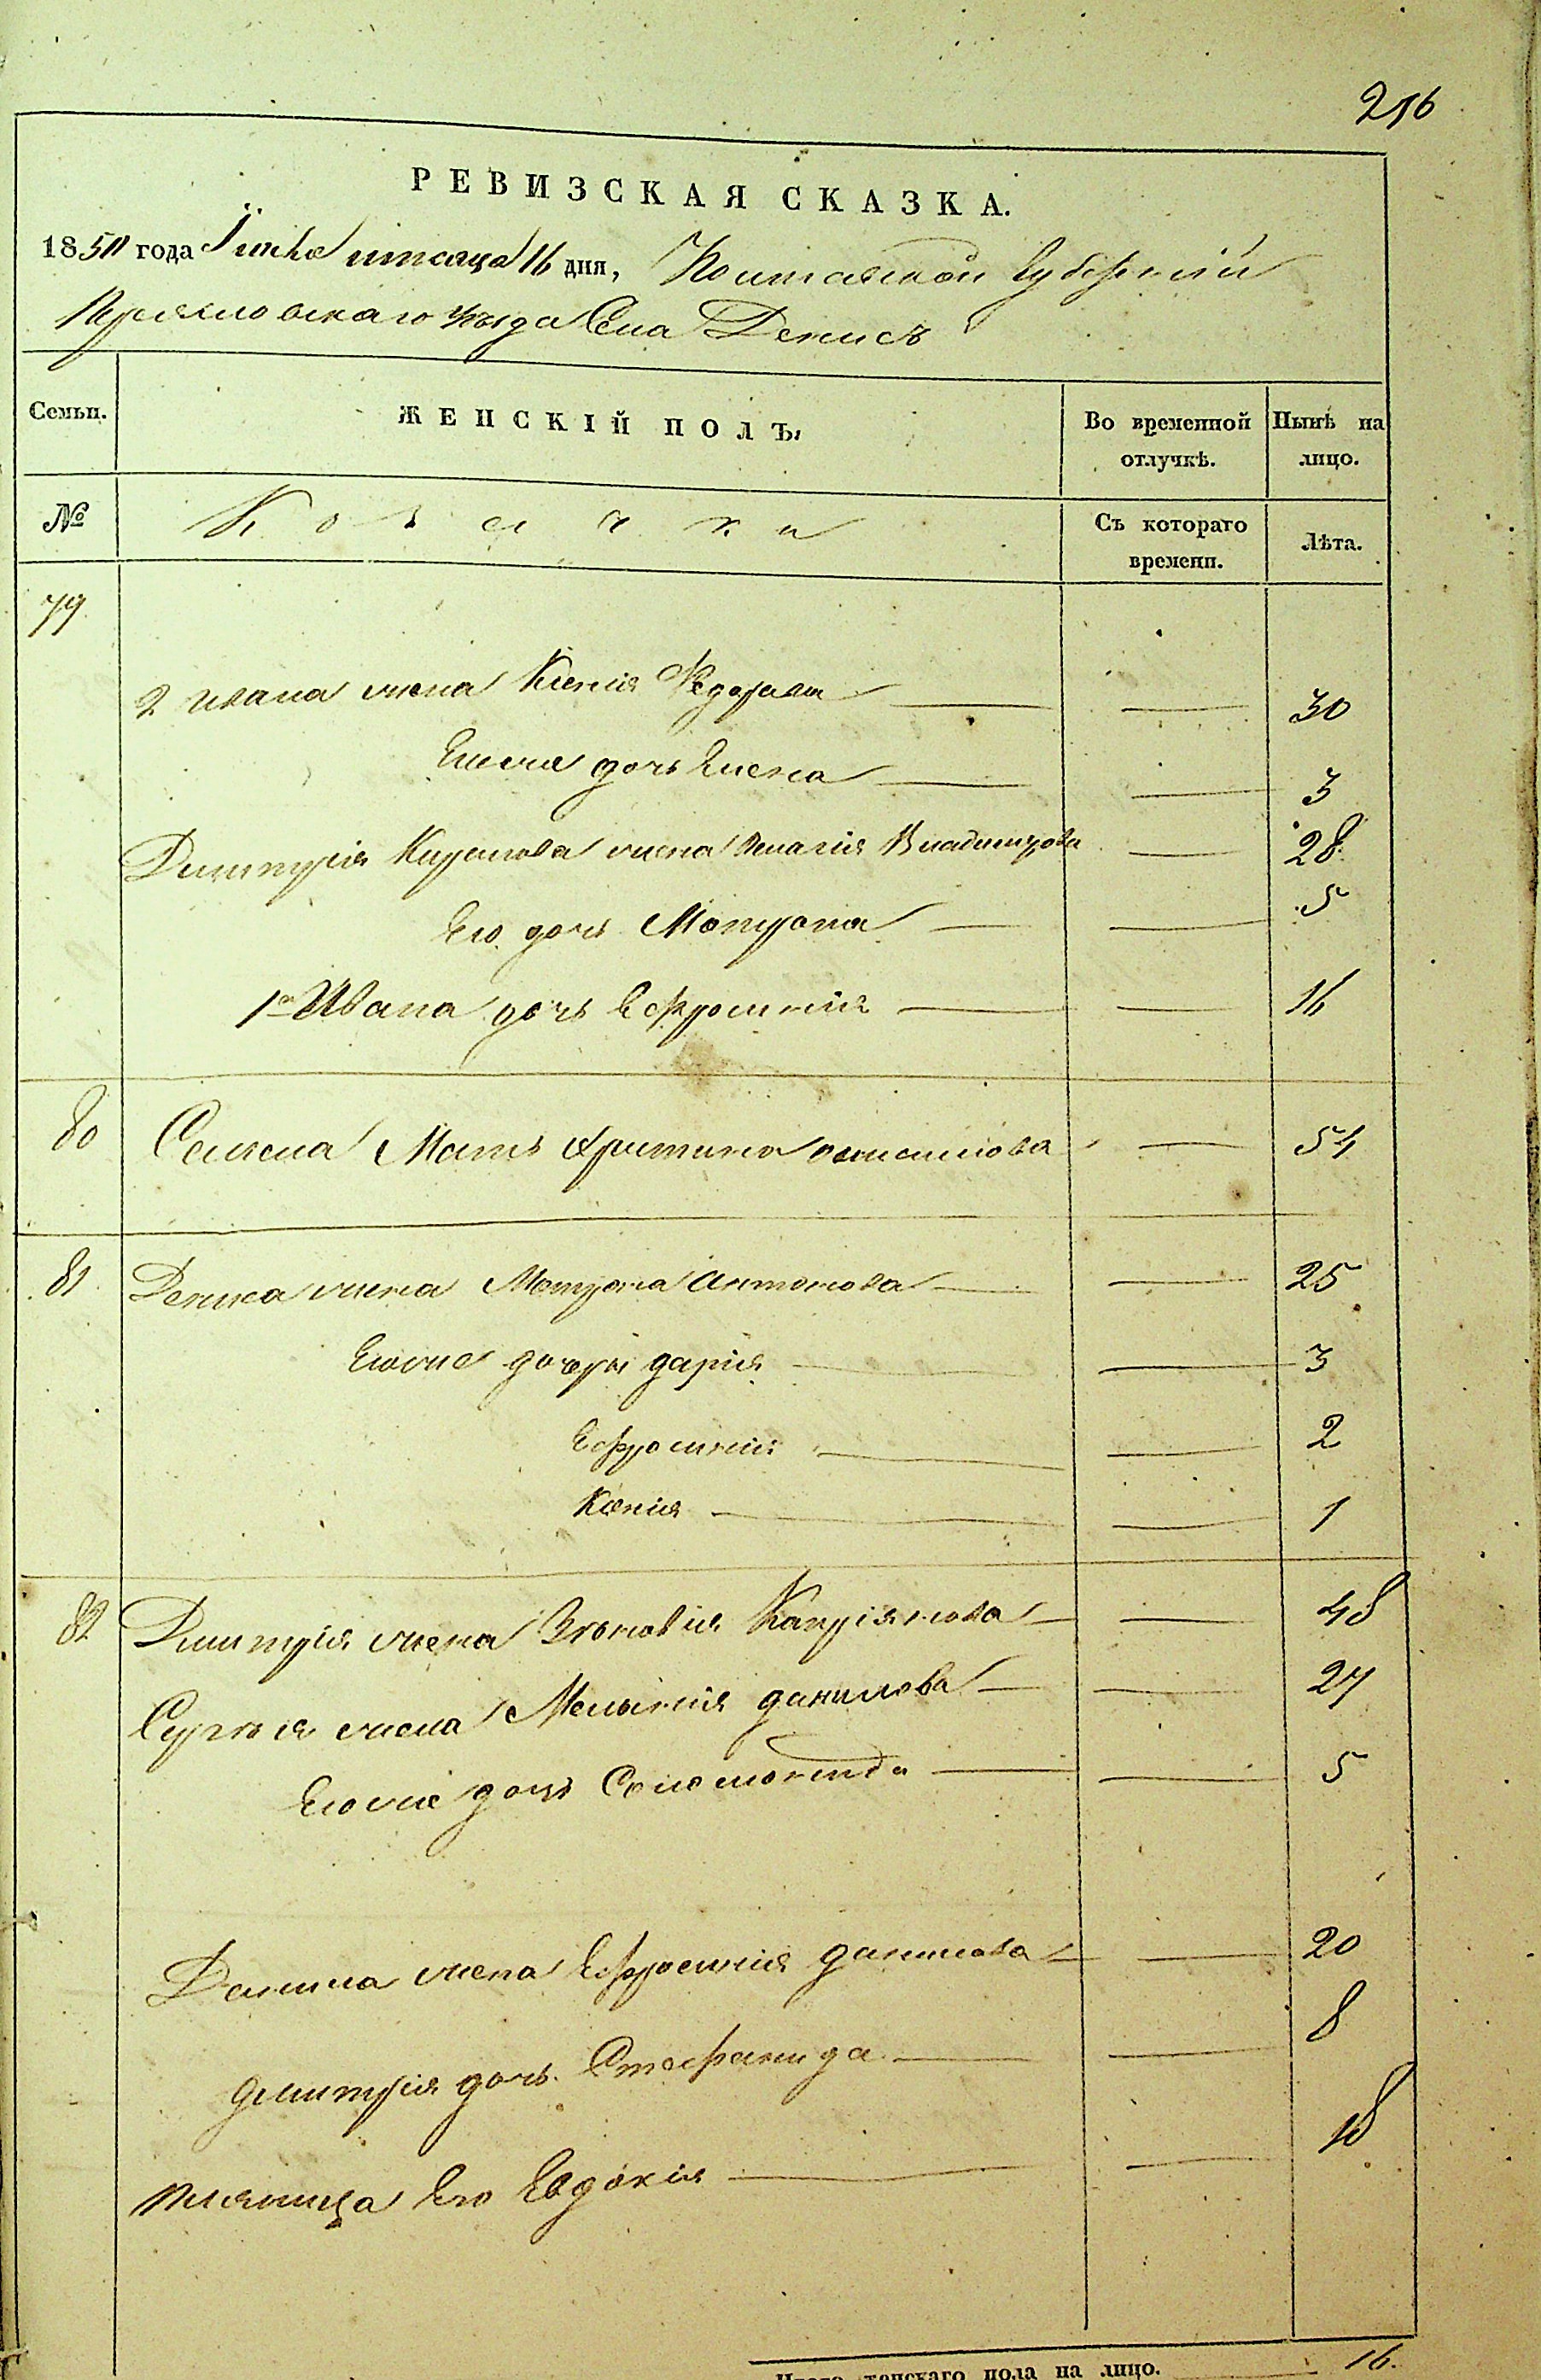 216
РЕВИЗСКАЯ СКАЗКА.
1850 года Іюня месяца 16 дня, Полтавской Губерніи
Переясловскаго уезда Села Денисъ
Семьи.
ЖЕНСКІЙ ПОЛЪ,
Во временной отлучкѣ.
Нынѣ на лицо.
№
Козачки
Съ котораго времени.
Лѣта.
79
2 Ивана жена Ксенія Федорова — — 30
Его же дочь Елена — — 3
Дмитрія Кирилова жена Пелагія Владимирова — 28
Его дочь Мотрона — — 5
1го Ивана дочь Ефросинія — — 16
80 Мать Христина — 54
81 Дениса жена Мотрона Антонова — — 25
Его же дочери дарія — — 3
Ефросинія — — 2
Ксенія — — 1
82 Дмитрія жена Зѣновія Капріянова — — 48
Сергѣя жена Меланія данилова — — 27
Его же дочь Соломонида — — 5
Данила жена Ефросинія данилова — — 20
дмитрія дочь Стефанида — — 8
племяница Его Евдокія — — 18
Итого женскаго пола на лицо. 16.